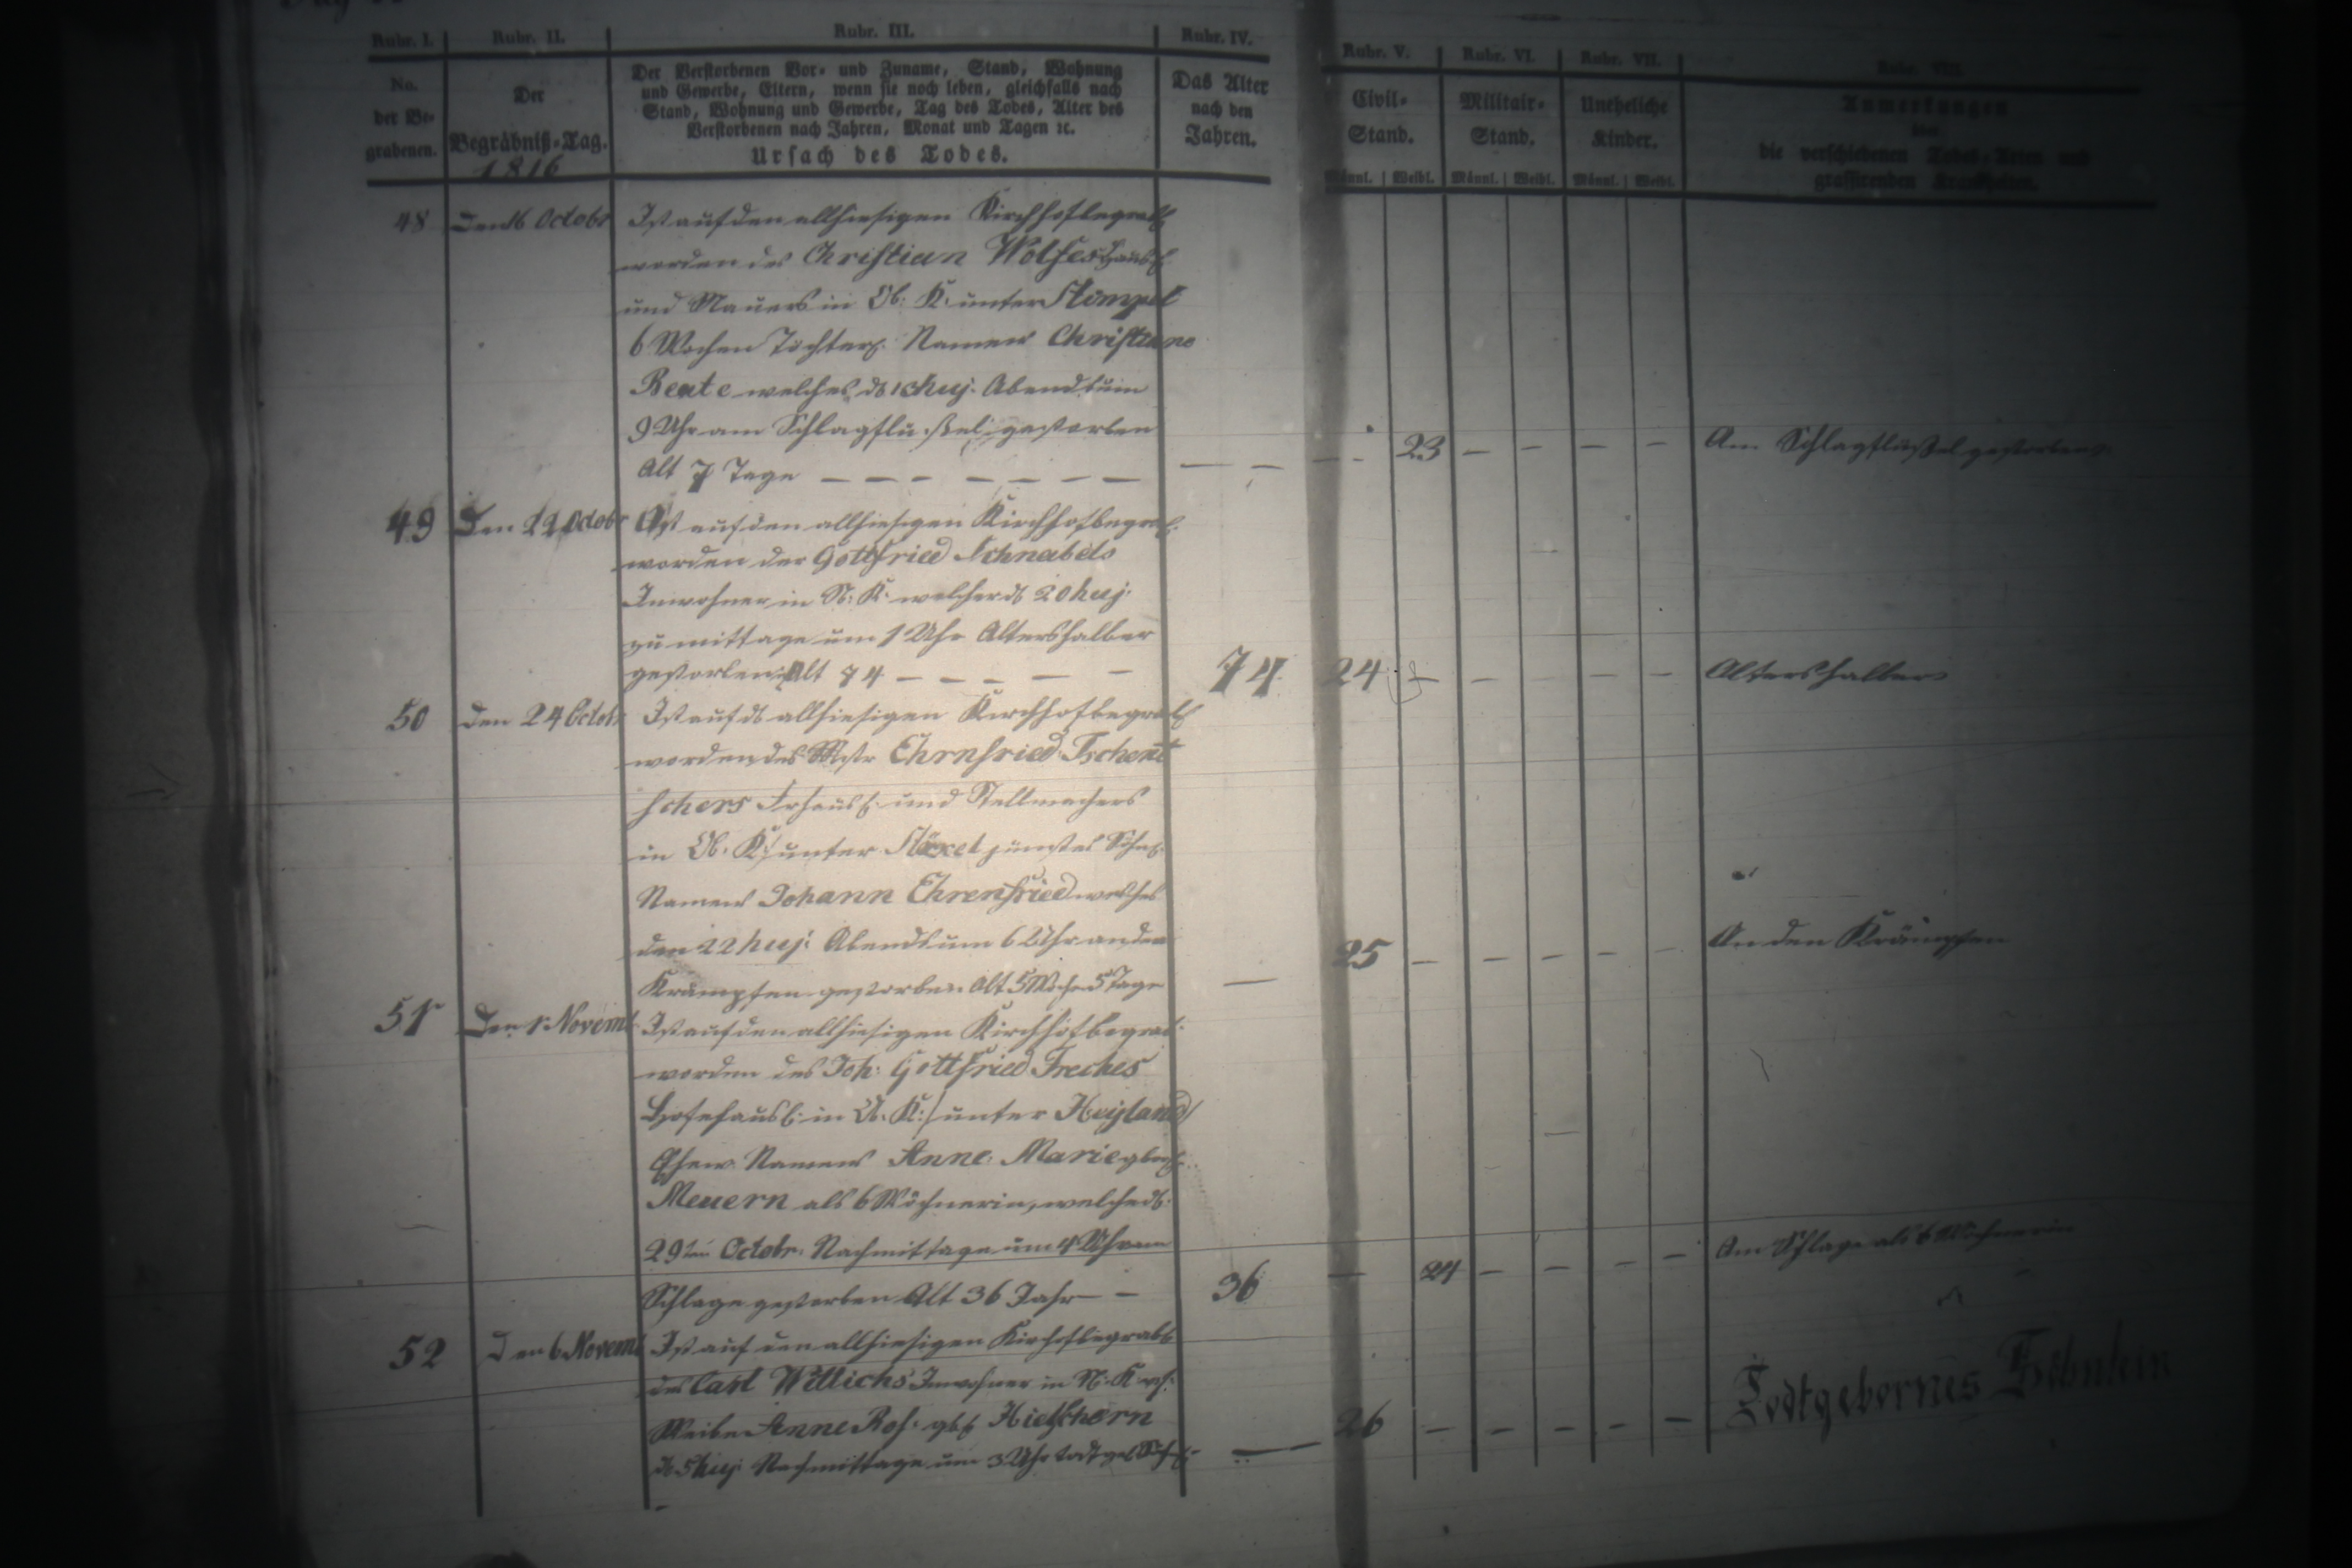 Rubr. I. Rubr. II. Rubr. III. Rubr. IV. Rubr. V. Rubr. VI. Rubr. VII. Rubr. VIII.
No. der Be-grabenen.
Der Begräbniß-Tag. 1816
Der Verstorbenen Vor- und Zuname, Stand, Wohnung
und Gewerbe, Eltern, wenn sie noch leben, gleichfalls nach
Stand, Wohnung und Gewerbe, Tag des Todes, Alter des
Verstorbenen nach Jahren, Monat und Tagen ꝛc.
Ursach des Todes.
Das Alter nach den Jahren.
Civil-Stand.
Militair-Stand.
Uneheliche Kinder.
Anmerkungen
über
die verschiedenen Todes-Arten und
grassirenden Krankheiten.
Männl. Weibl. Männl. Weibl. Männl. Weibl.
48 Den 16 Octobr Ist auf den allhiesigen Kirchhof begrab
worden des Christian Wolfes Hausl
und Mauers in Ob: K: unter Stömpel
6 Wochen Töchterl. Namens Christiane
Beate welches d huj. Abends um
9 Uhr am Schlagflußel gestorben
Alt 7 Tage — — — — — — — 23 — — — — Am Schlagflußel gestorben
49 Den 22 Octobr Ist auf den allhiesigen Kirchhof begrab
worden der Gottfried Schnabels
Inwohner in N: K: welcher d 20 huj.
zu mittage um 1 Uhr Altershalber
gestorben Alt 74 — — — — — 74 24 — — — — Altershalber
50 Den 24 Octobr Ist auf d allhiesigen Kirchhof begrab
worden des Mstr Ehrnfried Tschent
schers Frhausl. und Stellmachers
in Ob: K: unter jüngstes Söhnl.
Namens Johann Ehrenfried welches
den 22 huj: Abends um 6 Uhr an den
Krämpfen gestorben Alt 5 Woch 5 Tage — 25 — — — — — An den Krämpfen
51 Den 1 Novemb Ist auf den allhiesigen Kirchhof begrab:
worden des Joh: Gottfried Freches
Hofehausl: in O: K: unter Heyland
Ehew. Namens Anne Marie geb
Meuern als 6 Wöchnerin, welche d:
29ten Octobr. Nachmittage um 4 Uhr am
Schlage gestorben Alt 36 Jahr — — 36 — 24 — — — — Am Schlage als 6 Wöchnerin
52 Den 6 Novemb Ist auf den allhiesigen Kirchhof begrab
des Carl Willichs Inwohner in N: K
Weibe Anne Ros: geb Hielschern
d 5 huj: Nachmittage um 3 Uhr todtgeb Söhnl — 26 — — — — — Todtgebornes Söhnlein